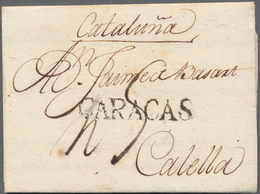 Cataluña
A Dn. Jaime a Basart
CARACAS
5
Calella